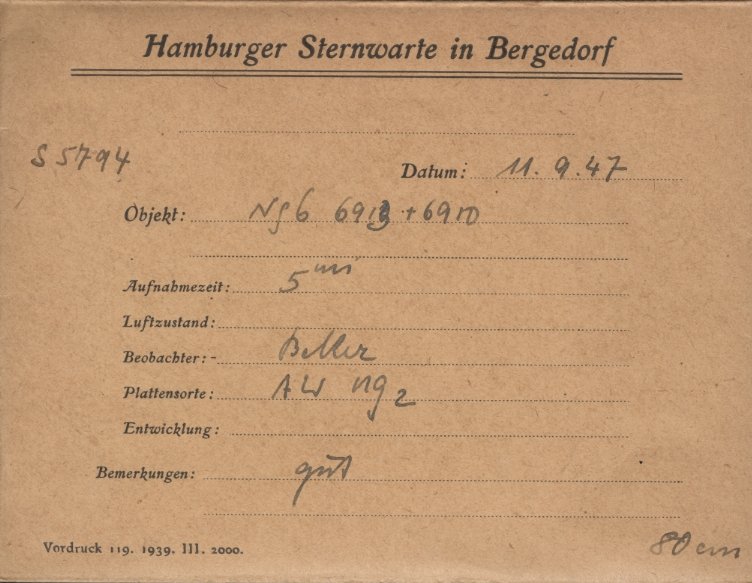 Hamburger Sternwarte in Bergedorf
S 5794
Datum: 11. 9. 47
Objekt: NGC 6913 + 6910
Aufnahmezeit: 5 min
Luftzustand:
Beobachter:
Plattensorte:
Entwicklung:
Bemerkungen: gut
Vordruck 119. 1939. III. 2000.
80 cm